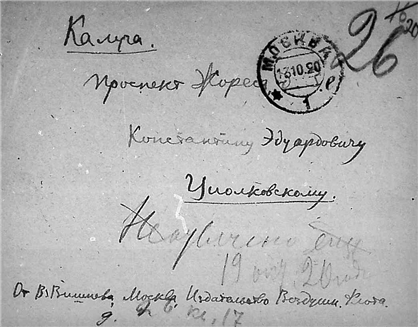 Калуга.
26
МОСКВА
13 10 20
1
Проспект Жореса
Константину Эдуардовичу
Циолковскому.
19 окт. 20 года
От В. Вишнева, Москва, Издательство Воздушн. Флота.
д. 6 кв. 17